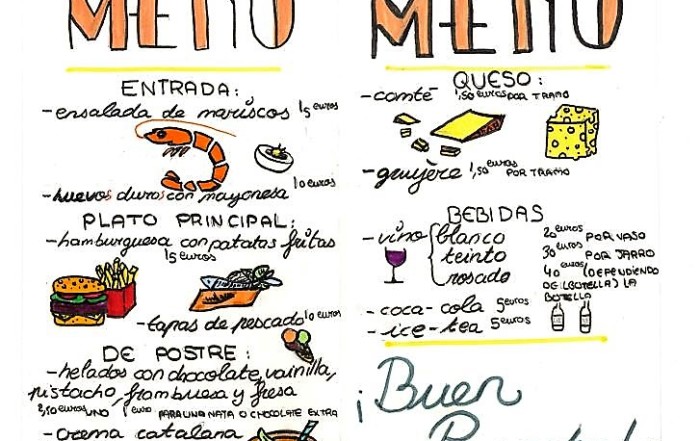 MENU
ENTRADA:
-ensalada de mariscos 15 euros
-huevos duros con mayonesa 10 euros
PLATO PRINCIPAL:
-hamburguesa con patatas fritas
15 euros
-tapas de pescado 10 euros
DE POSTRE:
-helados con chocolate, vainilla,
pistacho, frambuesa y fresa
2,50 euros UNO 1 euro PARA UNA NATA O CHOCOLATE EXTRA
-crema catalana
MENU
QUESO:
-comté 1,50 euros POR TRAMO
-gruyère 1,50 euros POR TRAMO
BEBIDAS
-vino blanco 20 euros POR VASO
teinto 30 euros POR JARRO
rosado 40 euros (DEPENDIENDO
DE (BOTELLA) LA
BOTELLA
-coca-cola 5 euros
-ice-tea 5 euros
¡Buen